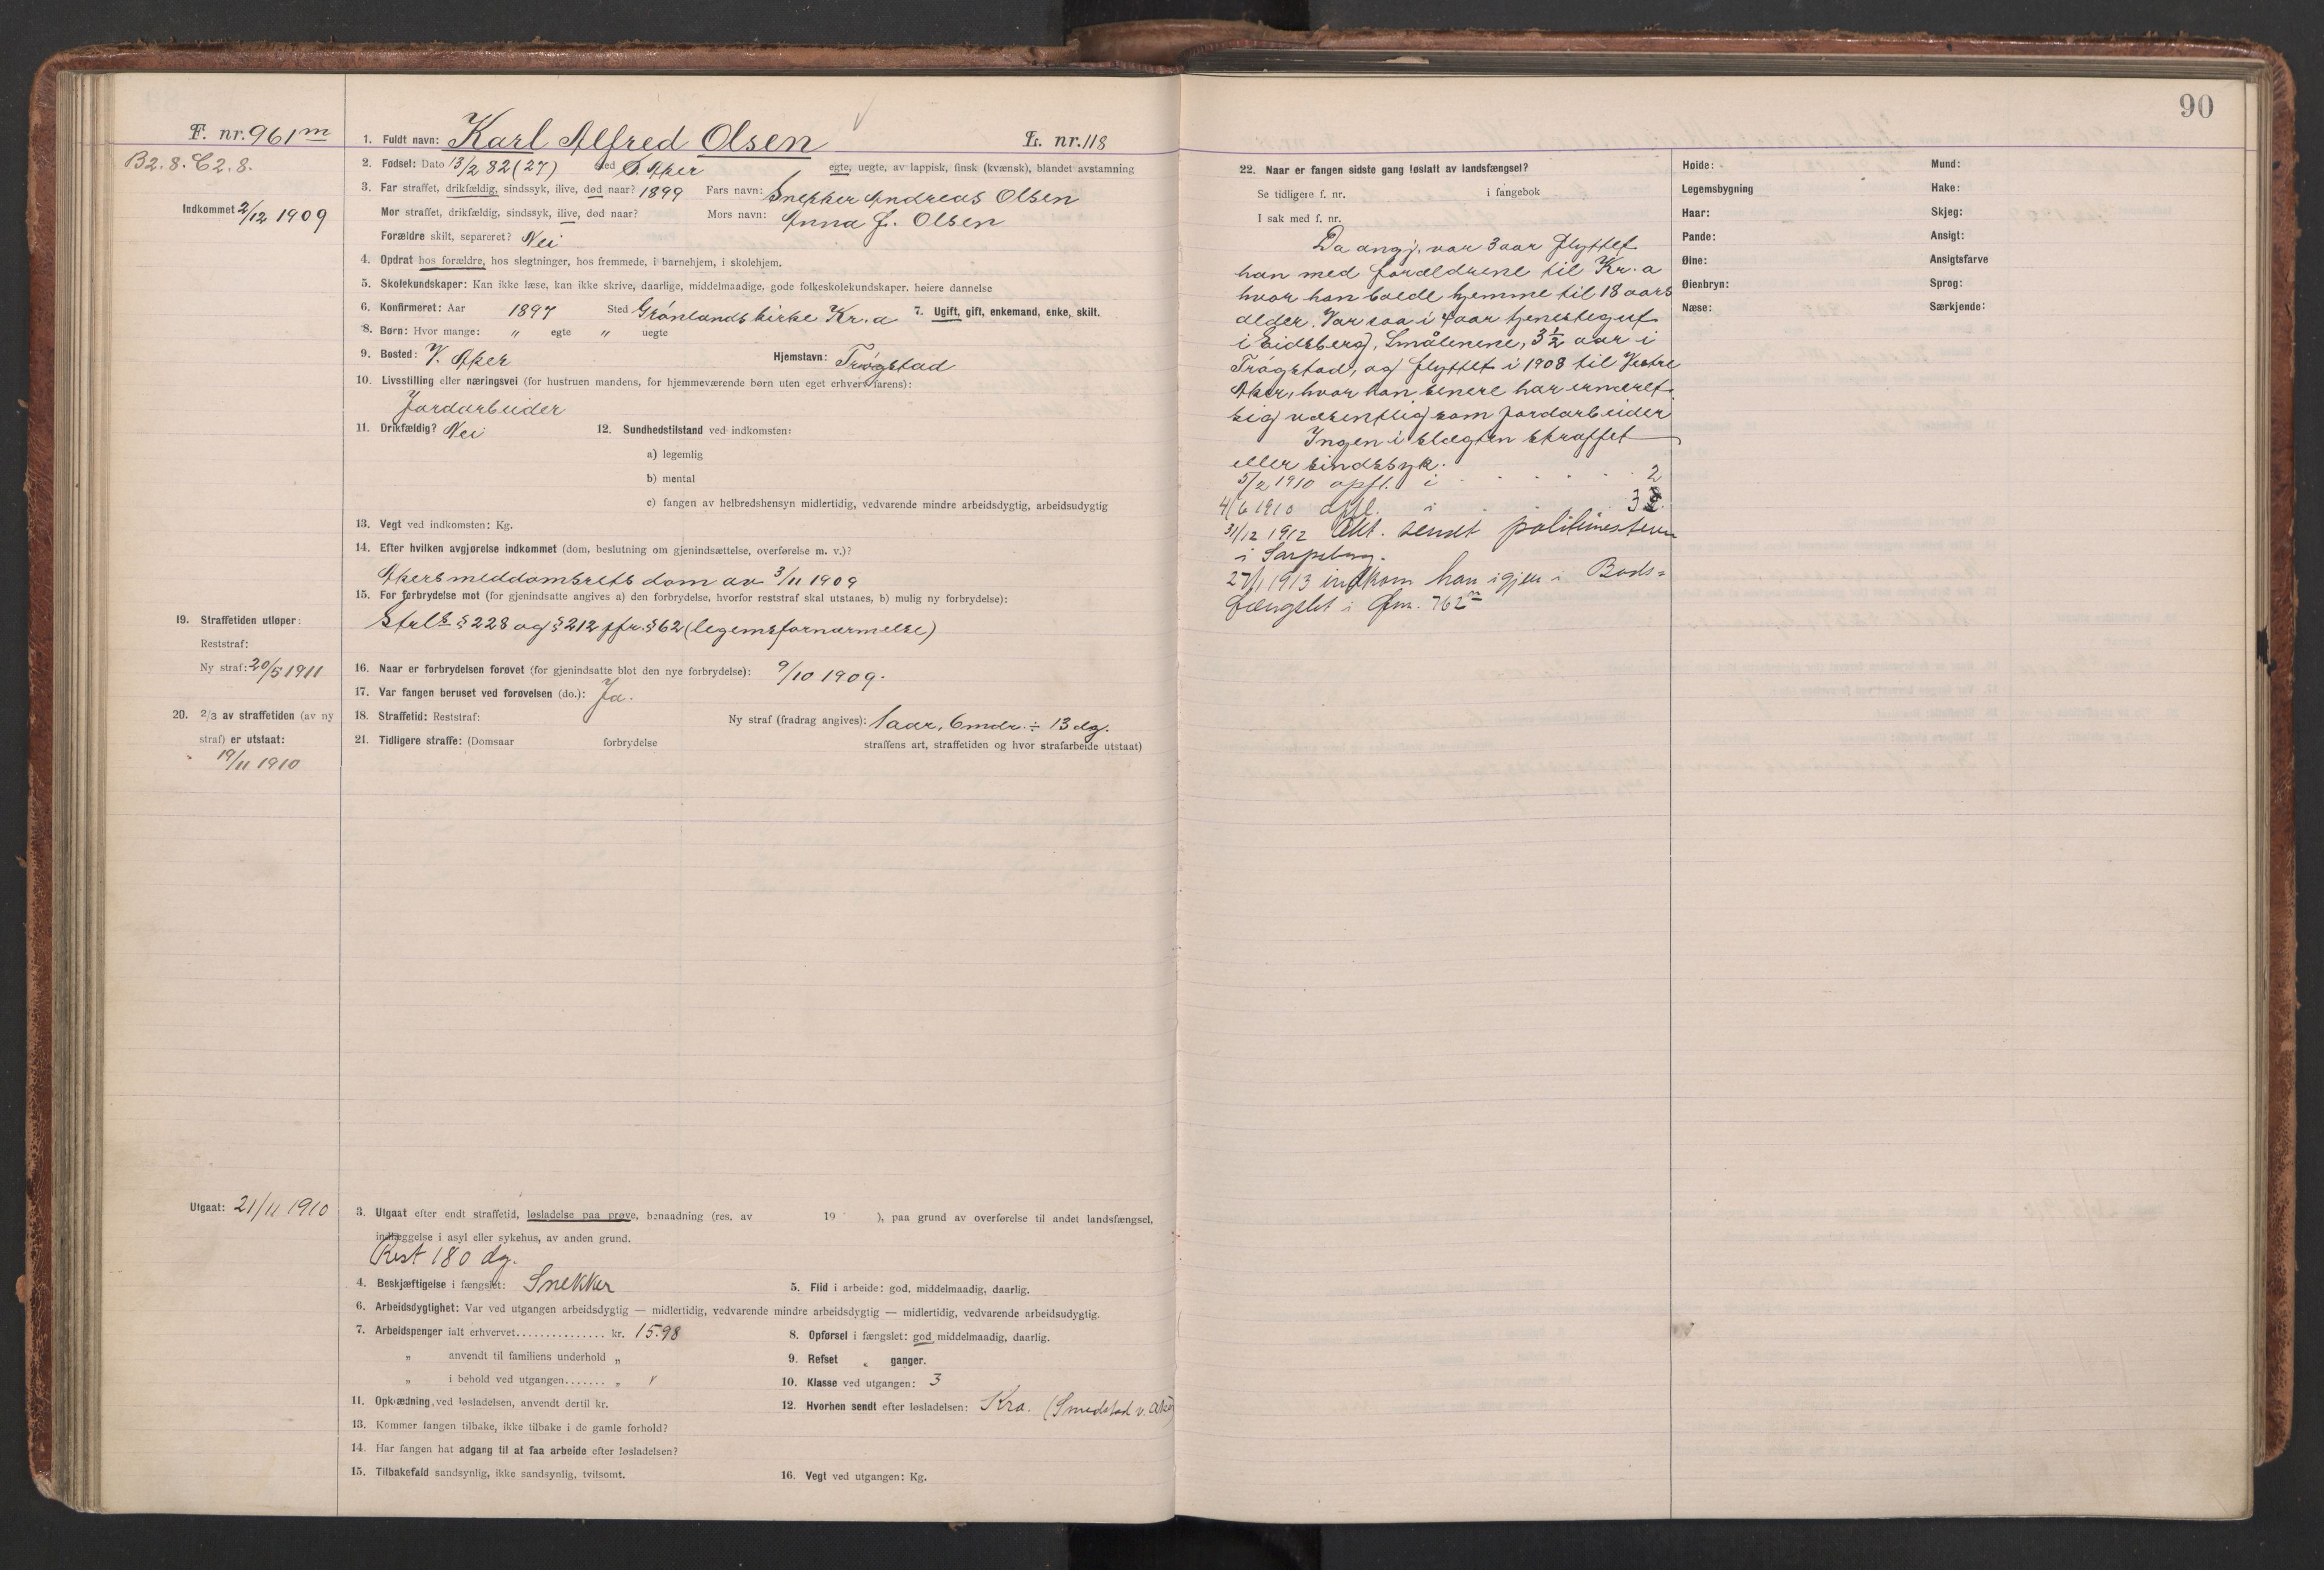 F. nr. 961 m
B2. 8. C2. 8.
Indkommet 2/12 1909
19. Straffetiden utløper:
Reststraf:
Ny straf: 20/5 1911
20. 2/3 av straffetiden (av ny
straf) er utstaat:
19/11 1910
Utgaat: 21/11 1910
1. Fuldt navn: Karl Alfred Olsen L. nr. 118
2. Fødsel: Dato 13/2 82 (27) Sted Ø. Aker egte, uegte, av lappisk, finsk (kvænsk), blandet avstamning
3. Far straffet, drikfældig, sindssyk, ilive, død naar? 1899 Fars navn: Snekker Andreas Olsen
Mor straffet, drikfældig, sindssyk, ilive, død naar? Mors navn: Anna J. Olsen
Forældre skilt, separeret? Nei
4. Opdrat hos forældre, hos slegtninger, hos fremmede, i barnehjem, i skolehjem.
5. Skolekundskaper: Kan ikke læse, kan ikke skrive, daarlige, middelmaadige, gode folkeskolekundskaper. høiere dannelse
6. Konfirmeret: Aar 1897 Sted Grønlands kirke Kr.a 7. Ugift, gift, enkemand, enke, skilt.
8. Børn: Hvor mange: " egte " uegte
9. Bosted: V. Aker Hjemstavn: Trøgstad
10. Livsstilling eller næringsvei (for hustruen mandens, for hjemmeværende børn uten eget erhverv farens):
Jordarbeider
11. Drikfældig? Nei 12. Sundhedstilstand ved indkomsten:
a) legemlig
b) mental
c) fangen av helbredshensyn midlertidig, vedvarende mindre arbeidsdygtig, arbeidsudygtig
13. Vegt ved indkomsten: Kg.
14. Efter hvilken avgjørelse indkommet (dom, beslutning om gjenindsættelse, overførelse m. v.)?
Akers meddomsrets dom av 3/11 1909
15. For forbrydelse mot (for gjenindsatte angives a) den forbrydelse, hvorfor reststraf skal utstaaes, b) mulig ny forbrydelse):
Strl's § 228 og § 212 jfr. § 62 (legemsfornærmelse)
16. Naar er forbrydelsen forøvet (for gjenindsatte blot den nye forbrydelse): 9/10 1909.
17. Var fangen beruset ved forøvelsen (do.): Ja.
18. Straffetid: Reststraf: Ny straf (fradrag angives): 1 aar, 6 mdr. ÷ 13 dg.
21. Tidligere straffe: (Domsaar forbrydelse straffens art, straffetiden og hvor strafarbeide utstaat)
3. Utgaat efter endt straffetid, løsladelse paa prøve, benaadning (res. av 19 ), paa grund av overførelse til andet landsfængsel,
indlæggelse i asyl eller sykehus, av anden grund.
Rest 180 dg.
4. Beskjæftigelse i fængslet: Snekker 5. Flid i arbeide: god, middelmaadig, daarlig.
6. Arbeidsdyglighet: Var ved utgangen arbeidsdygtig — midlertidig, vedvarende mindre arbeidsdygtig — midlertidig, vedvarende arbeidsudygtig.
7. Arbeidspenger ialt erhvervet............... kr. 15.98 8. Opførsel i fængslet: god middelmaadig, daarlig.
" anvendt til familiens underhold " 9. Refset " ganger.
" i behold ved utgangen....... " 10. Klasse ved utgangen: 3
11. Opklædning ved løsladelsen, anvendt dertil kr. 12. Hvorhen sendt efter løsladelsen: Kra. (Smedstad v. Aker)
13. Kommer fangen tilbake, ikke tilbake i de gamle forhold?
14. Har fangen hat adgang til at faa arbeide efter løsladelsen?
15. Tilbakefald sandsynlig, ikke sandsynlig, tvilsomt. 16. Vegt ved utgangen: Kg.
90
22. Naar er fangen sidste gang løslatt av landsfængsel?
Se tidligere f. nr. i fangebok
I sak med f. nr.
Da angj. var 3 aar flyttet
han med forældrene til Kr.a
hvor han boede hjemme til 18 aars
alder. Var saa i 4 aar tjenestegut
i Eidsberg, Smålenene, 3 1/2 aar i
Trøgstad, og flyttet i 1908 til Vestre
Aker, hvor han senere har ernæret
sig væsentlig som jordarbeider
Ingen i slægten straffet
eller sindssyk.
5/2 1910 opfl. i . . . . 2
4/6 1910 opfl. i . . 3
31/12 1912 Akt. sendt politimesteren
i Sarpsborg.
27/1 1913 indkom han igjen i Bods=
fængslet i Fnr. 762 m
Høide:
Legemsbygning
Haar:
Pande:
Øine:
Øienbryn:
Næse:
Mund:
Hake:
Skjeg:
Ansigt:
Ansigtsfarve
Sprog:
Særkjende: